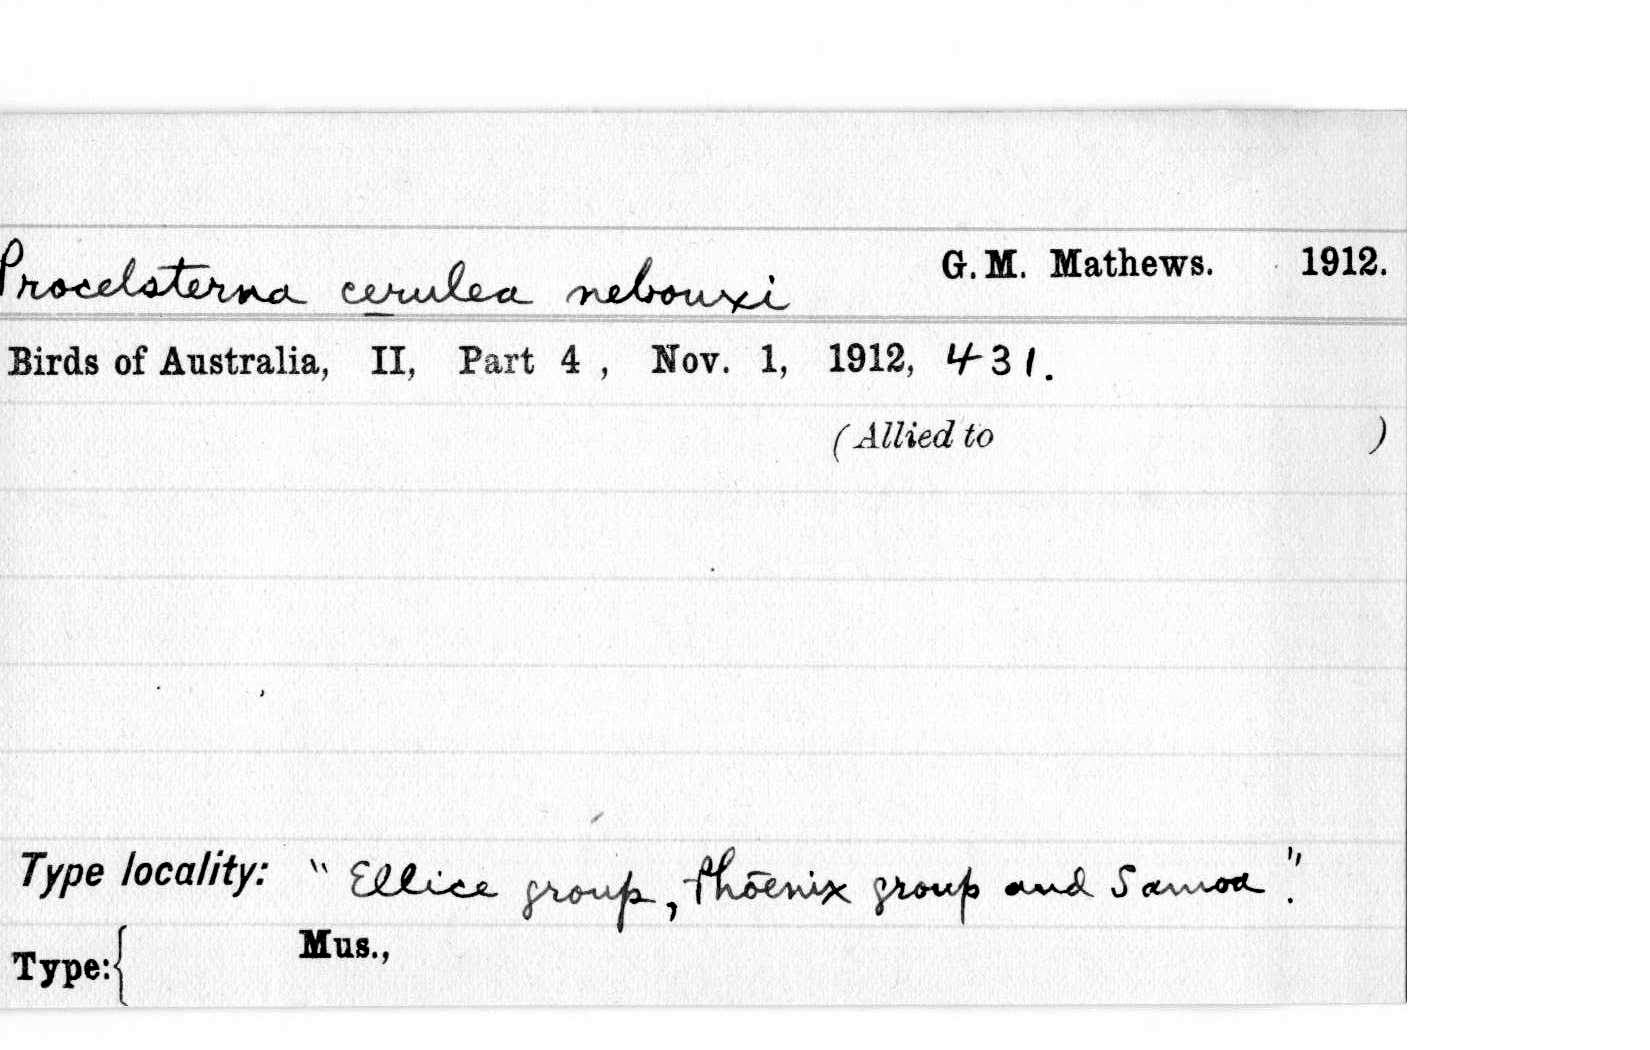 Procelsterna cerulea nebouxi G. M. Mathews. 1912.
Birds of Australia, II, Part 4 , Nov. 1, 1912, 431.
(Allied to )
Type locality: "Ellice group, Phoenix group and Samoa".
Mus.,
Type:{